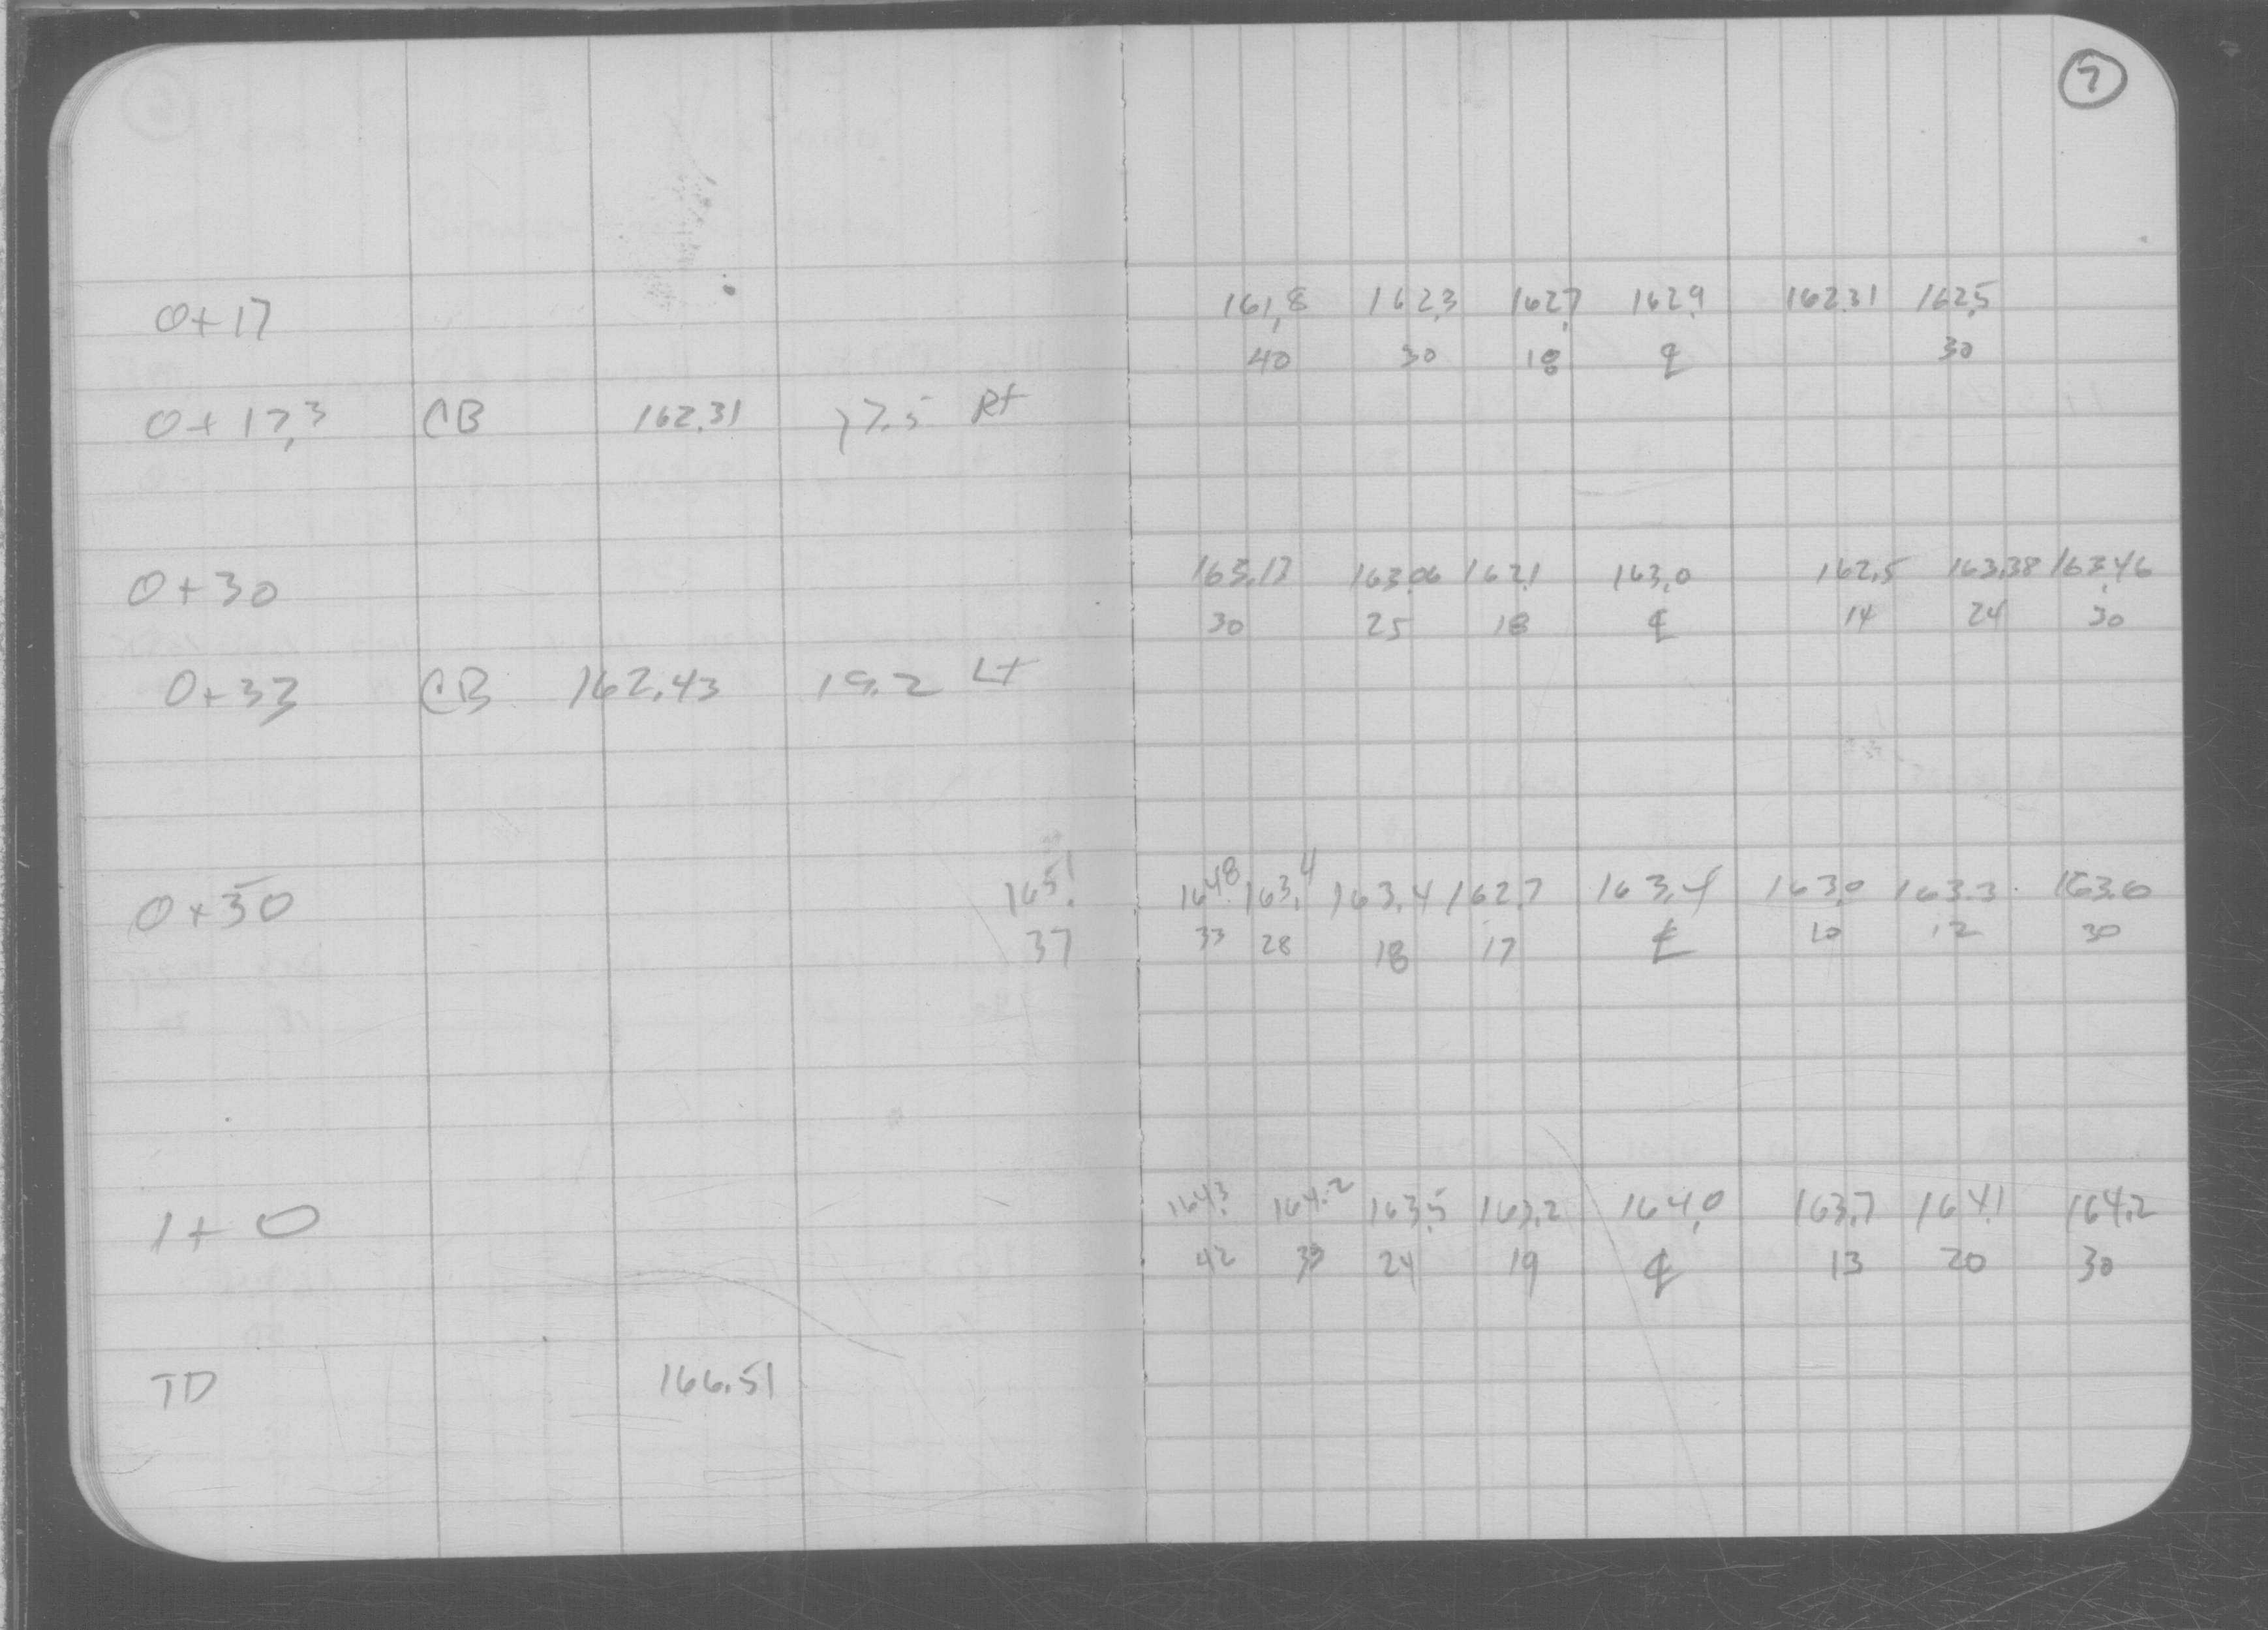 7
0+17 161.8 162.3 162.7 162.9 162.31 162.5
40 30 18 ℄ 30
0+17.3 CB 162.31 17.5 Rt
0+30 163.13 163.06 162.1 163.0 162.5 163.38 163.46
30 25 18 ℄ 14 24 30
0+33 CB 162.43 19.2 Lt
0+50 165.1 164.8 163.4 163.4 162.7 163.4 163.0 163.3 163.6
37 33 28 18 17 ℄ 10 12 30
1+0 164.3 164.2 163.5 163.2 164.0 163.7 164.1 164.2
42 24 19 ℄ 13 20 30
TD 166.51